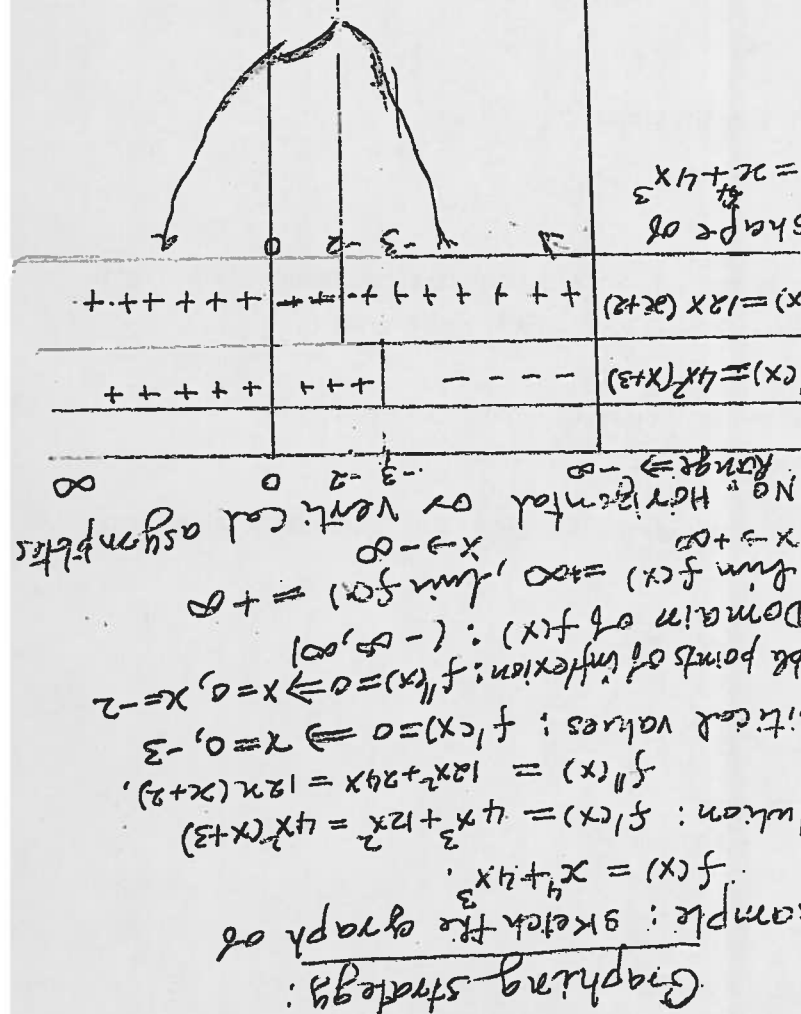 Graphing strategy:
ample: sketch the graph of
f(x) = x⁴+4x³.
lution: f'(x) = 4x³+12x² = 4x²(x+3)
f''(x) = 12x²+24x = 12x(x+2).
itical values: f'(x)=0 ⇒ x=0, -3
ble points of inflexion: f''(x)=0 ⇒ x=0, x=-2
Domain of f(x): (-∞,∞)
lim f(x) = +∞, lim f(x) = +∞
x→+∞ x→-∞
No Horizental or vertical asymptotes
Range ⇒ -∞ -3 -2 0 ∞
'(x)=4x²(x+3) - - - - + + + + + + + +
(x)=12x(x+2) + + + + + + + - - - + + + + + +
shape of
= x⁴+4x³
-3 -2 0